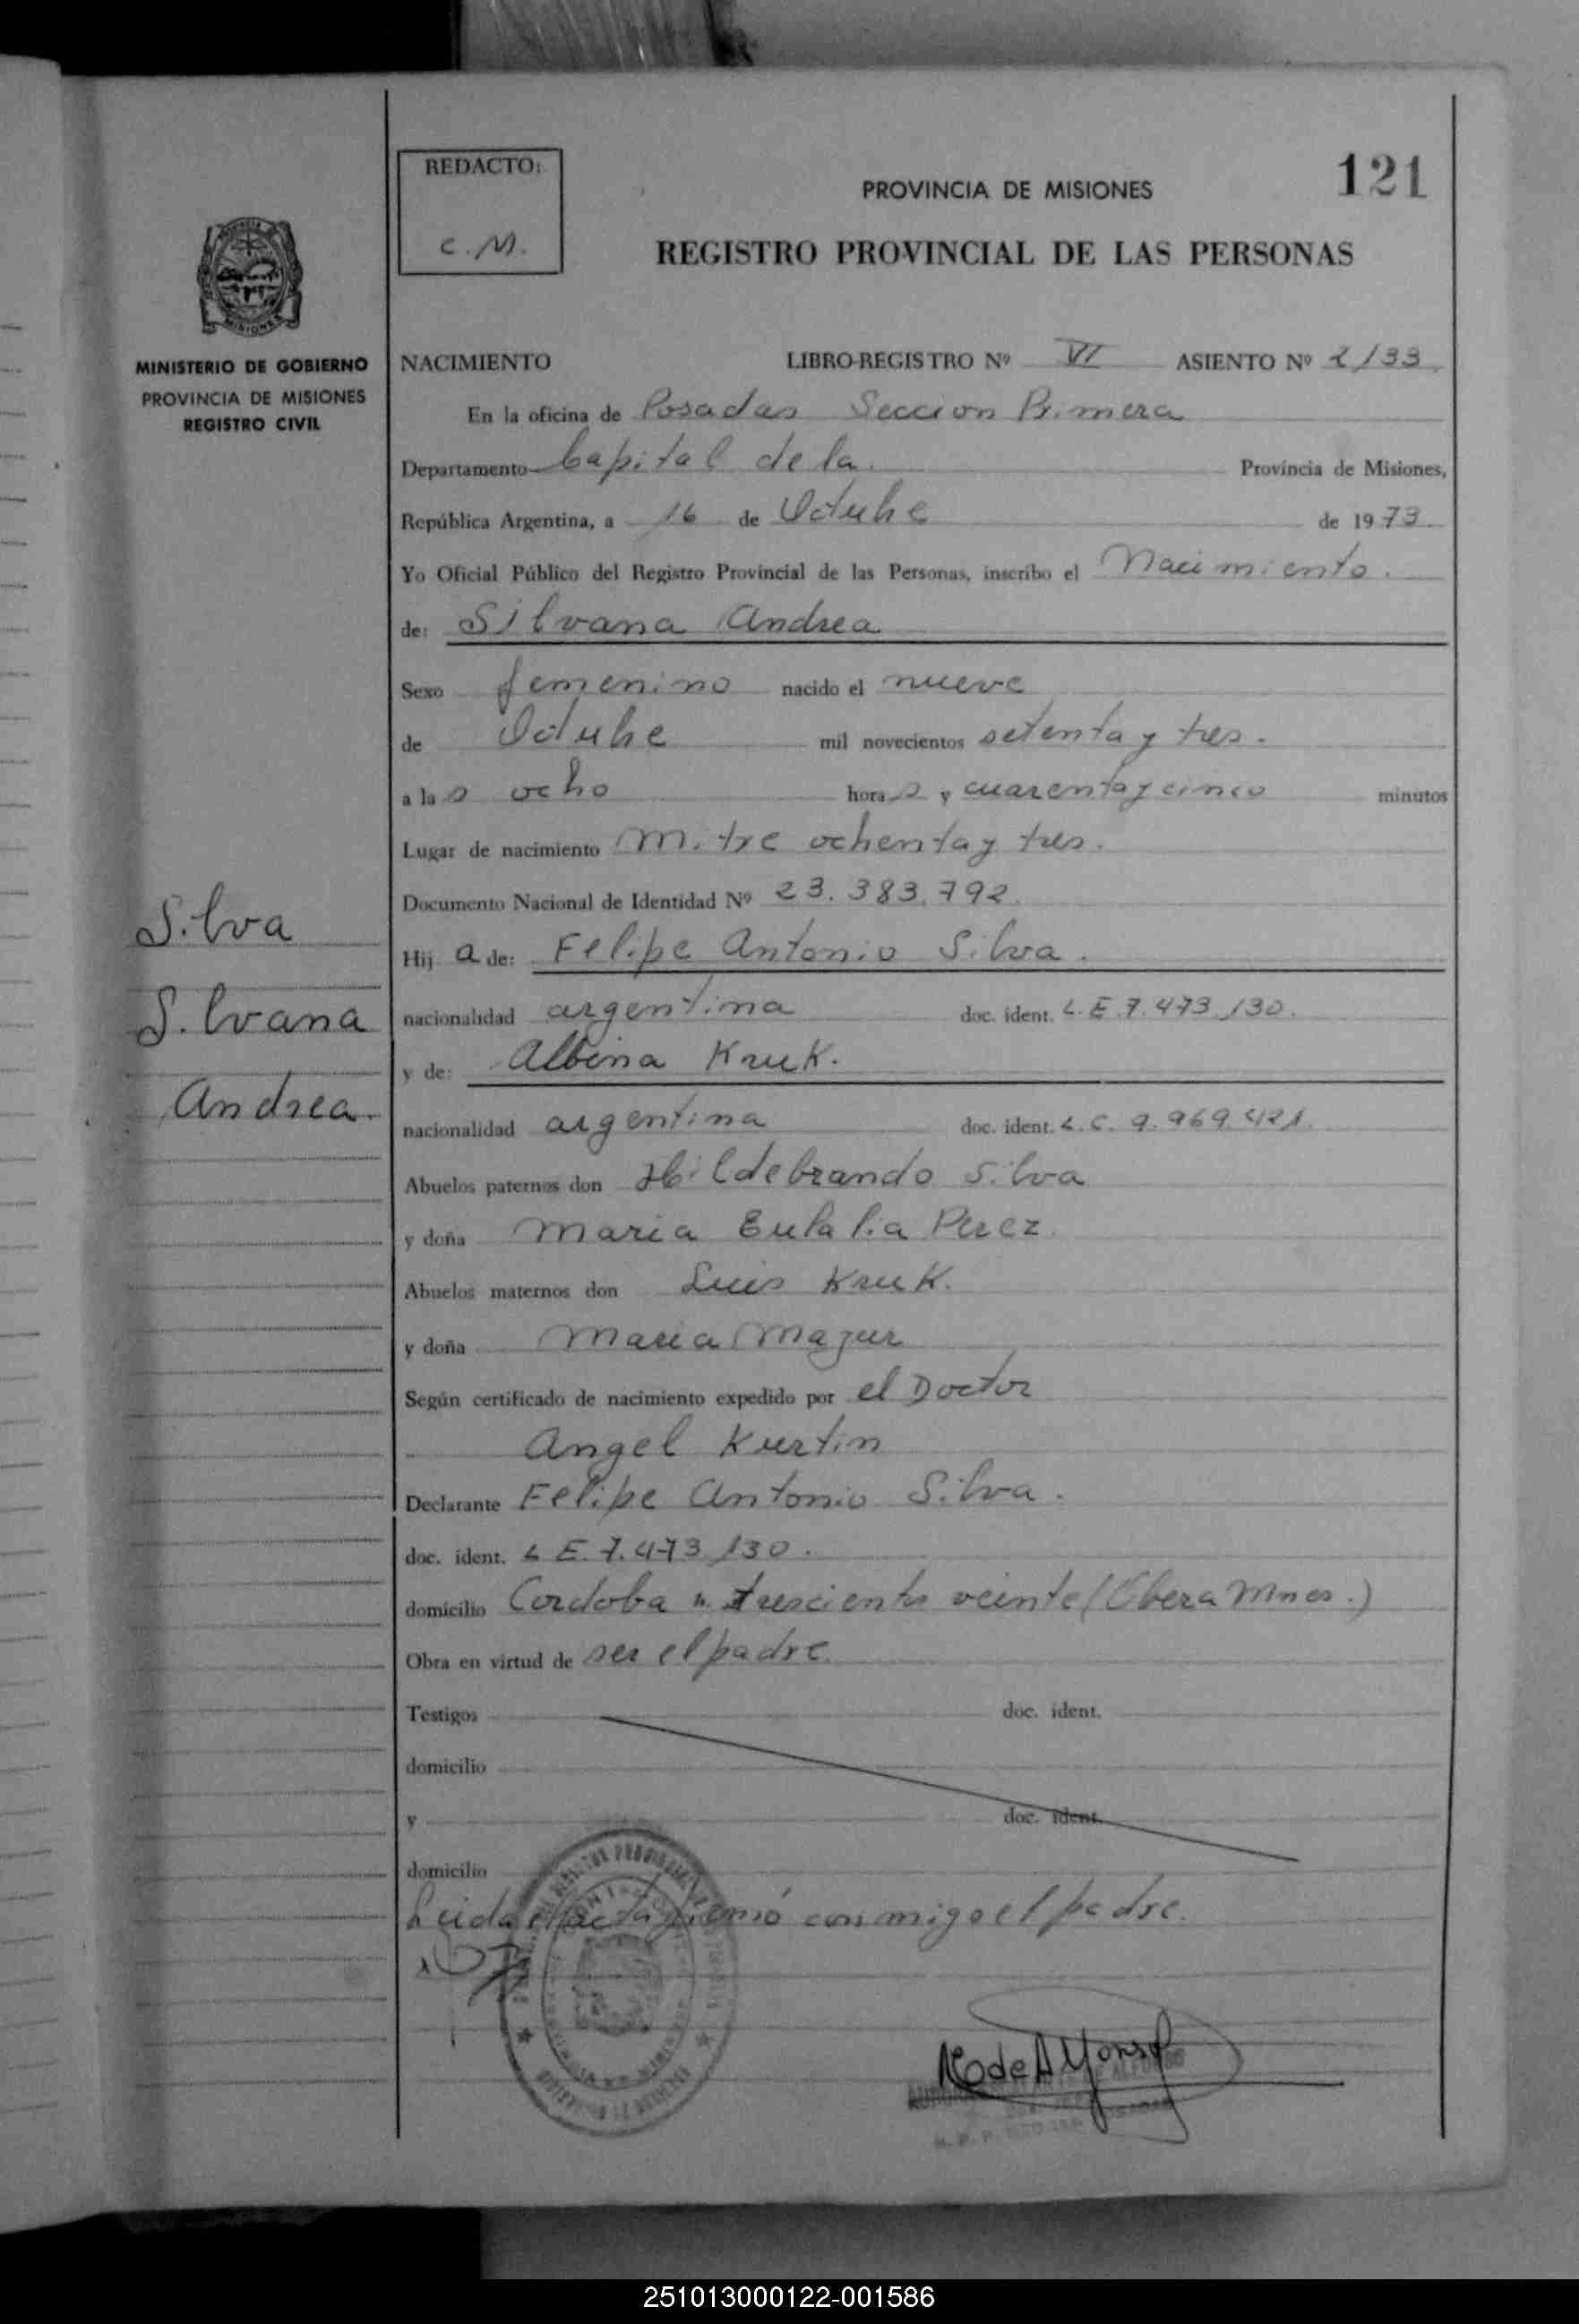 121
REDACTO:
C. M.
PROVINCIA DE MISIONES
REGISTRO PROVINCIAL DE LAS PERSONAS
MINISTERIO DE GOBIERNO
PROVINCIA DE MISIONES
REGISTRO CIVIL
NACIMIENTO LIBRO-REGISTRO Nº VI ASIENTO Nº 2133
En la oficina de Posadas Seccion Primera
Departamento Capital de la Provincia de Misiones,
República Argentina, a 16 de Octubre de 1973
Yo Oficial Público del Registro Provincial de las Personas, inscribo el Nacimiento.
de: Silvana Andrea
Sexo femenino nacido el nueve
de Octubre mil novecientos setenta y tres.
a las ocho horas y cuarenta y cinco minutos
Lugar de nacimiento Mitre ochenta y tres.
Documento Nacional de Identidad Nº 23.383.792.
Silva
Silvana
Andrea.
Hija de: Felipe Antonio Silva.
nacionalidad argentina doc. ident. L.E.7.473.130.
y de: Albina Kruk.
nacionalidad argentina doc. ident. L.C. 9.969.421.
Abuelos paternos don Hildebrando Silva
y doña Maria Eulalia Perez.
Abuelos maternos don Luis Kruk.
y doña Maria Mazur
Según certificado de nacimiento expedido por el Doctor
Angel Kurtin
Declarante Felipe Antonio Silva.
doc. ident. L E. 7.473.130.
domicilio Cordoba n. trescientos veinte (Obera Mnes.)
Obra en virtud de ser el padre.
Testigos doc. ident.
domicilio
y doc. ident.
domicilio
Leida el acta firmó conmigo el padre.
251013000122-001586